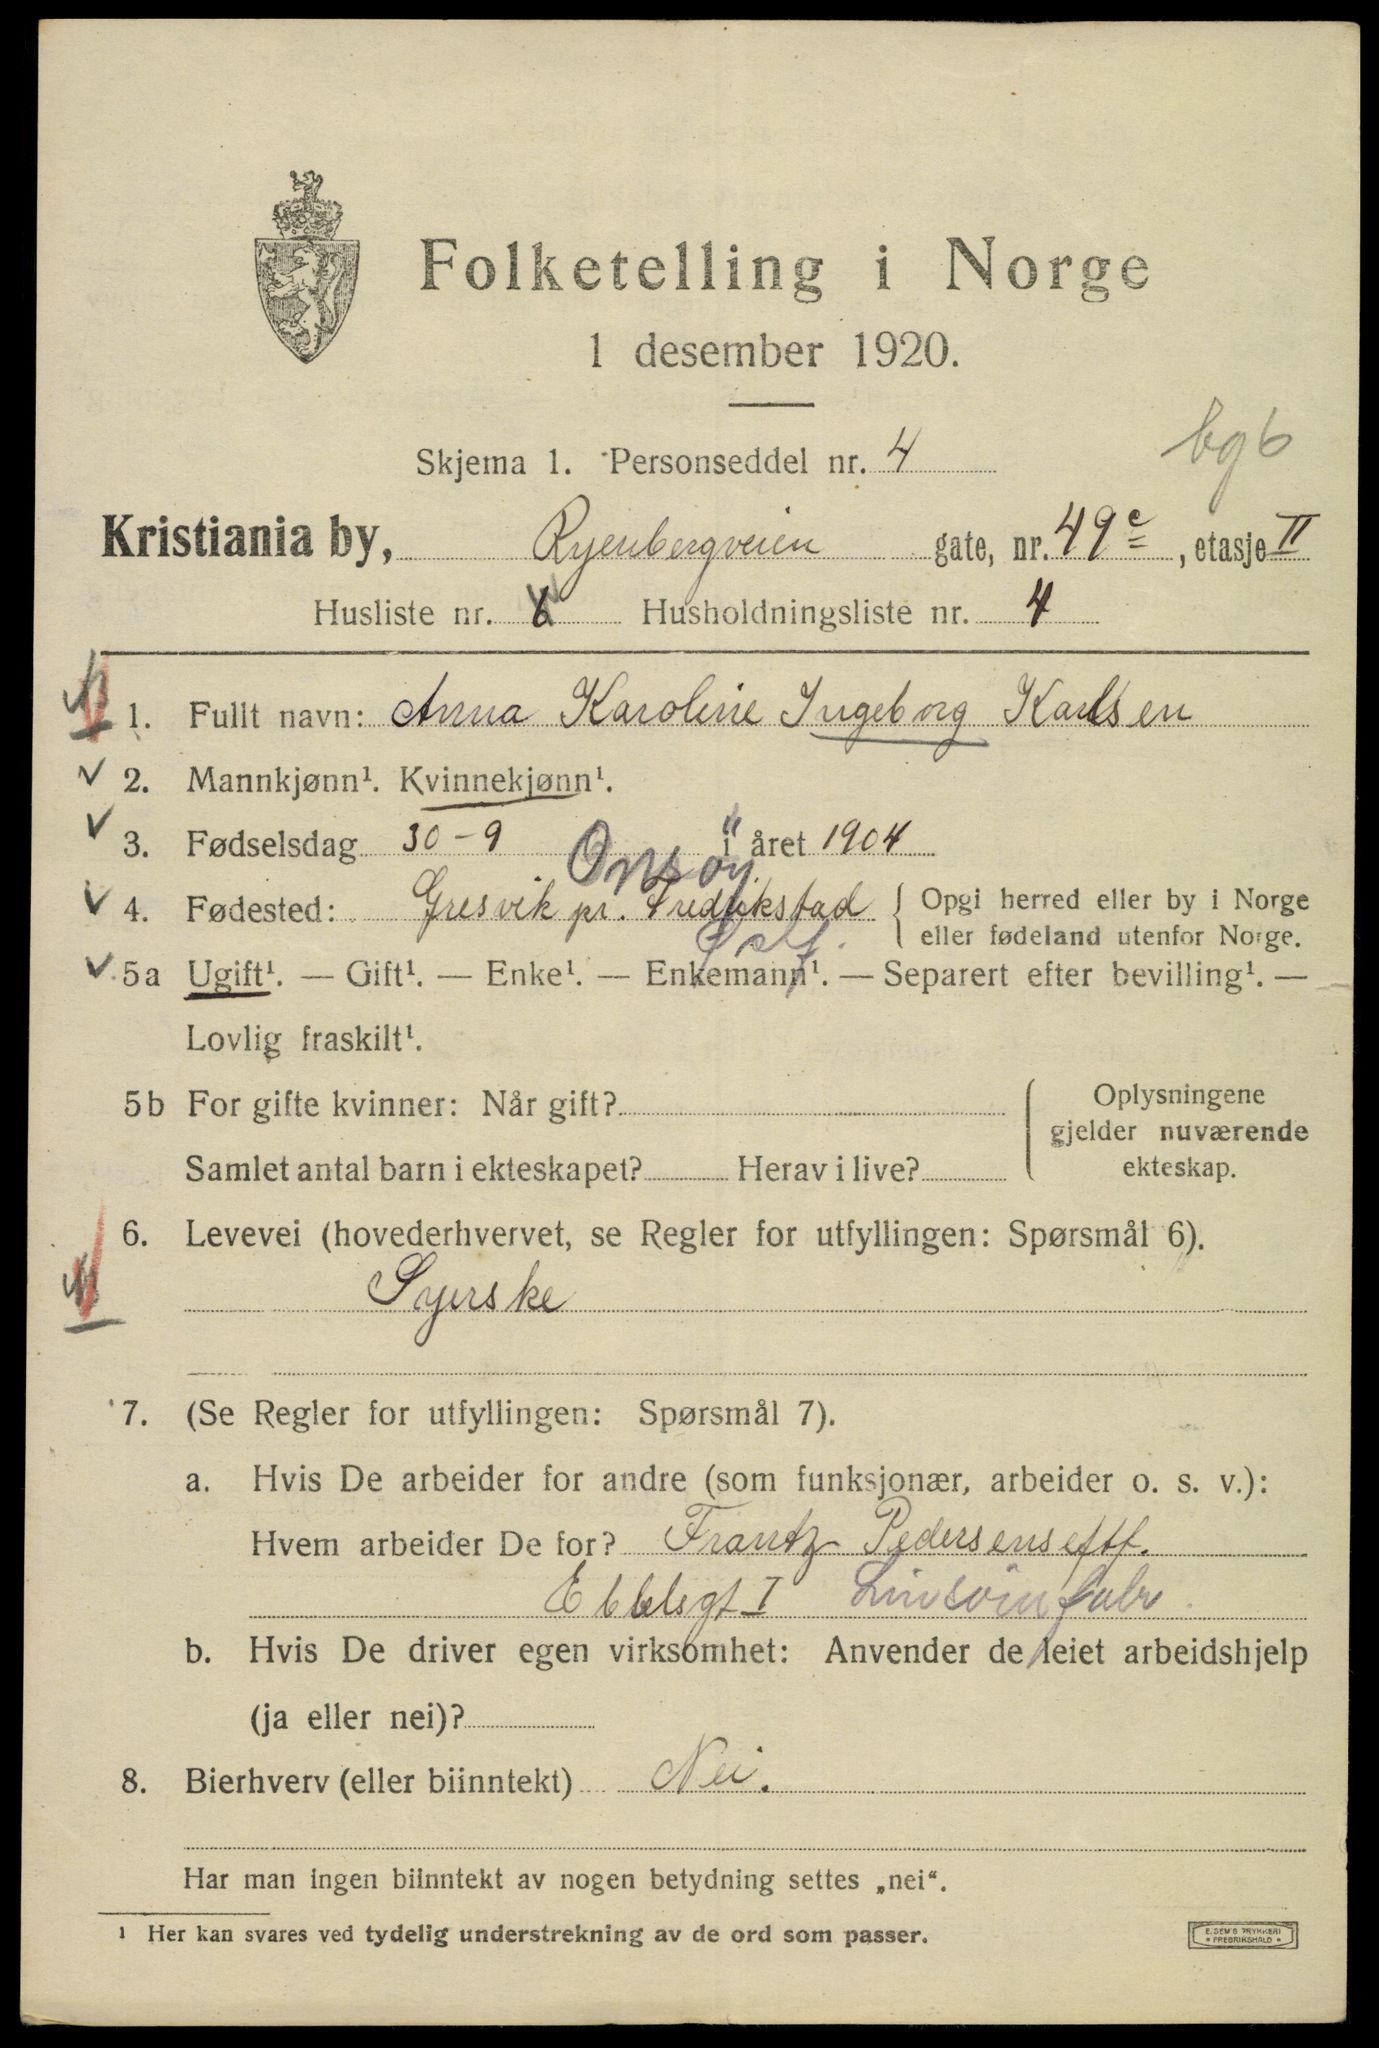 Folketelling i Norge
1 desember 1920.
Skjema 1. Personseddel nr. 4
bg6
Kristiania by, Ryenbergveien gate, nr. 49c, etasje II
Husliste nr. 6 Husholdningsliste nr. 4
1. Fullt navn: Anna Karoline Ingeborg Karlsen
2. Mannkjønn¹. Kvinnekjønn¹.
3. Fødselsdag 30-9 i året 1904
Onsøy
4. Fødested: Gresvik pr. Fredrikstad { Opgi herred eller by i Norge
eller fødeland utenfor Norge.
Østf.
5a Ugift¹. — Gift¹. — Enke¹. — Enkemann¹. — Separert efter bevilling¹. —
Lovlig fraskilt¹.
5b For gifte kvinner: Når gift? { Oplysningene
gjelder nuværende
Samlet antal barn i ekteskapet? Herav i live? ekteskap.
6. Levevei (hovederhvervet, se Regler for utfyllingen: Spørsmål 6).
Syerske
7. (Se Regler for utfyllingen: Spørsmål 7).
a. Hvis De arbeider for andre (som funksjonær, arbeider o. s. v.):
Hvem arbeider De for? Frantz Pedersens eftf.
Ebbelsgt I
b. Hvis De driver egen virksomhet: Anvender de leiet arbeidshjelp
(ja eller nei)?
8. Bierhverv (eller biinntekt) Nei.
Har man ingen biinntekt av nogen betydning settes „nei“.
¹ Her kan svares ved tydelig understrekning av de ord som passer.
E. SEM'S TRYKKERI
* FREDRIKSHALD *